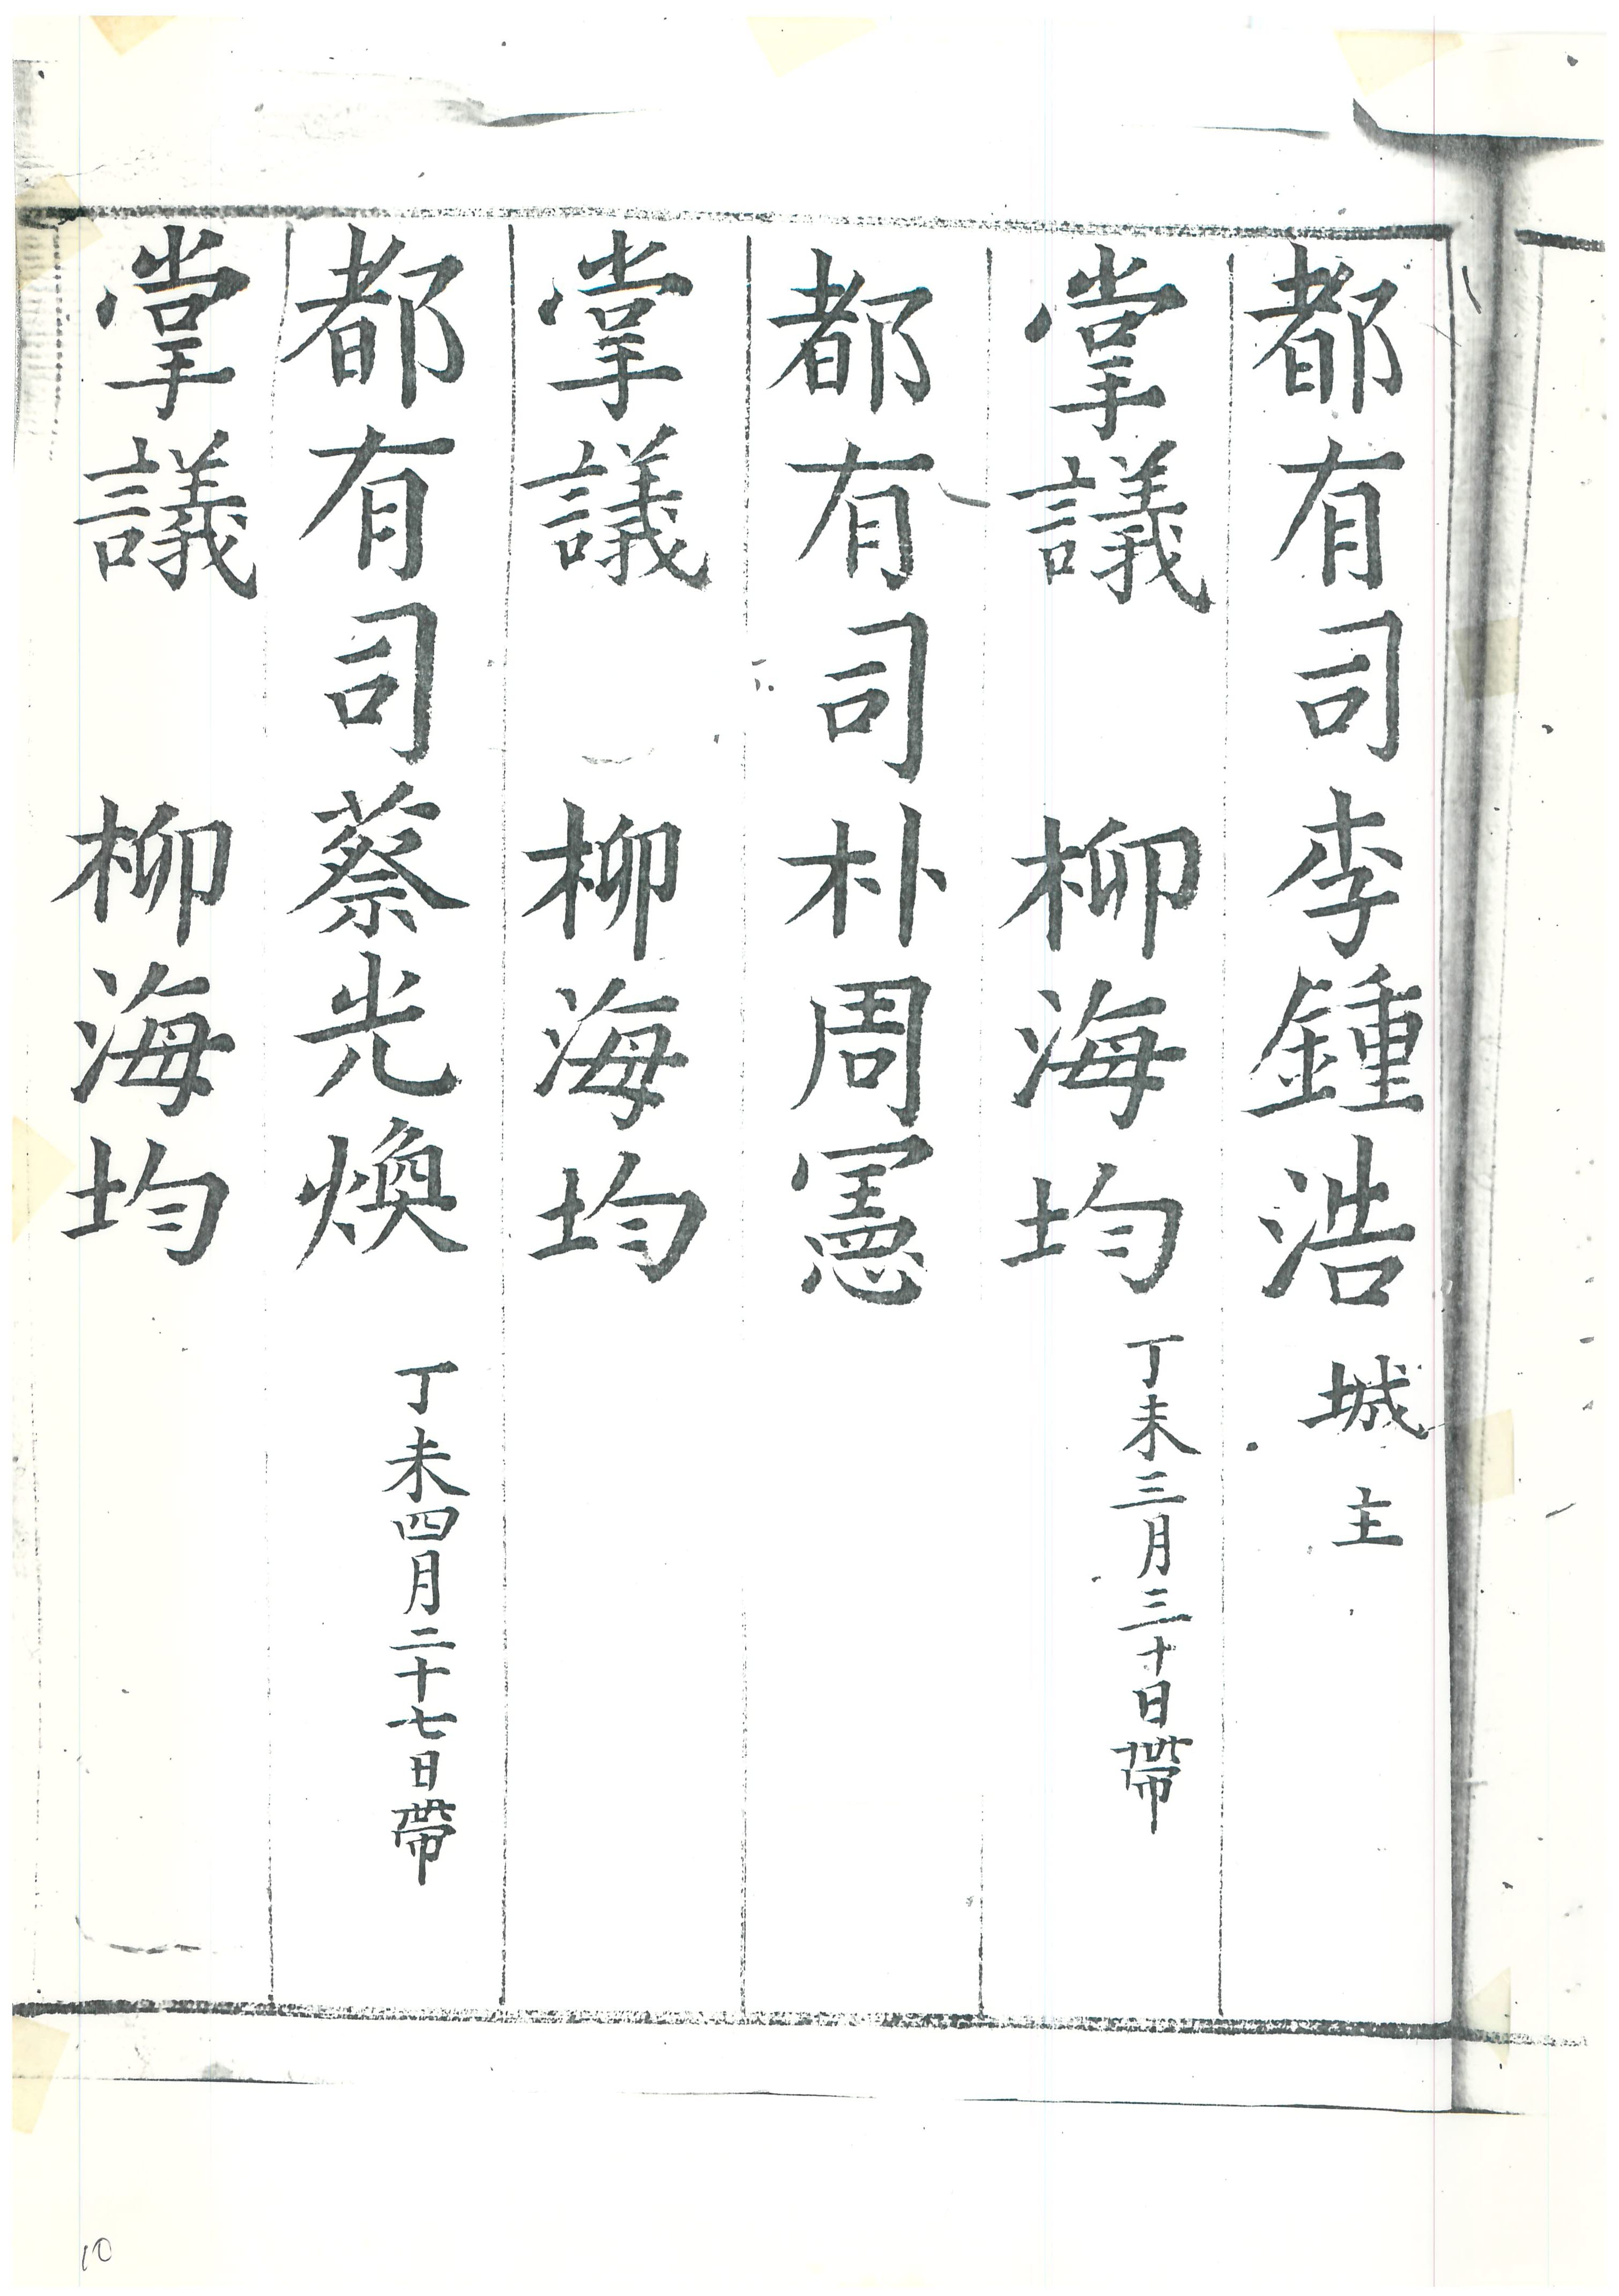 都有司李鍾浩 城主
掌議 柳海均 丁未三月三十日帶
都有司朴周憲
掌議 柳海均
都有司蔡光煥 丁未四月二十七日帶
掌議 柳海均
10